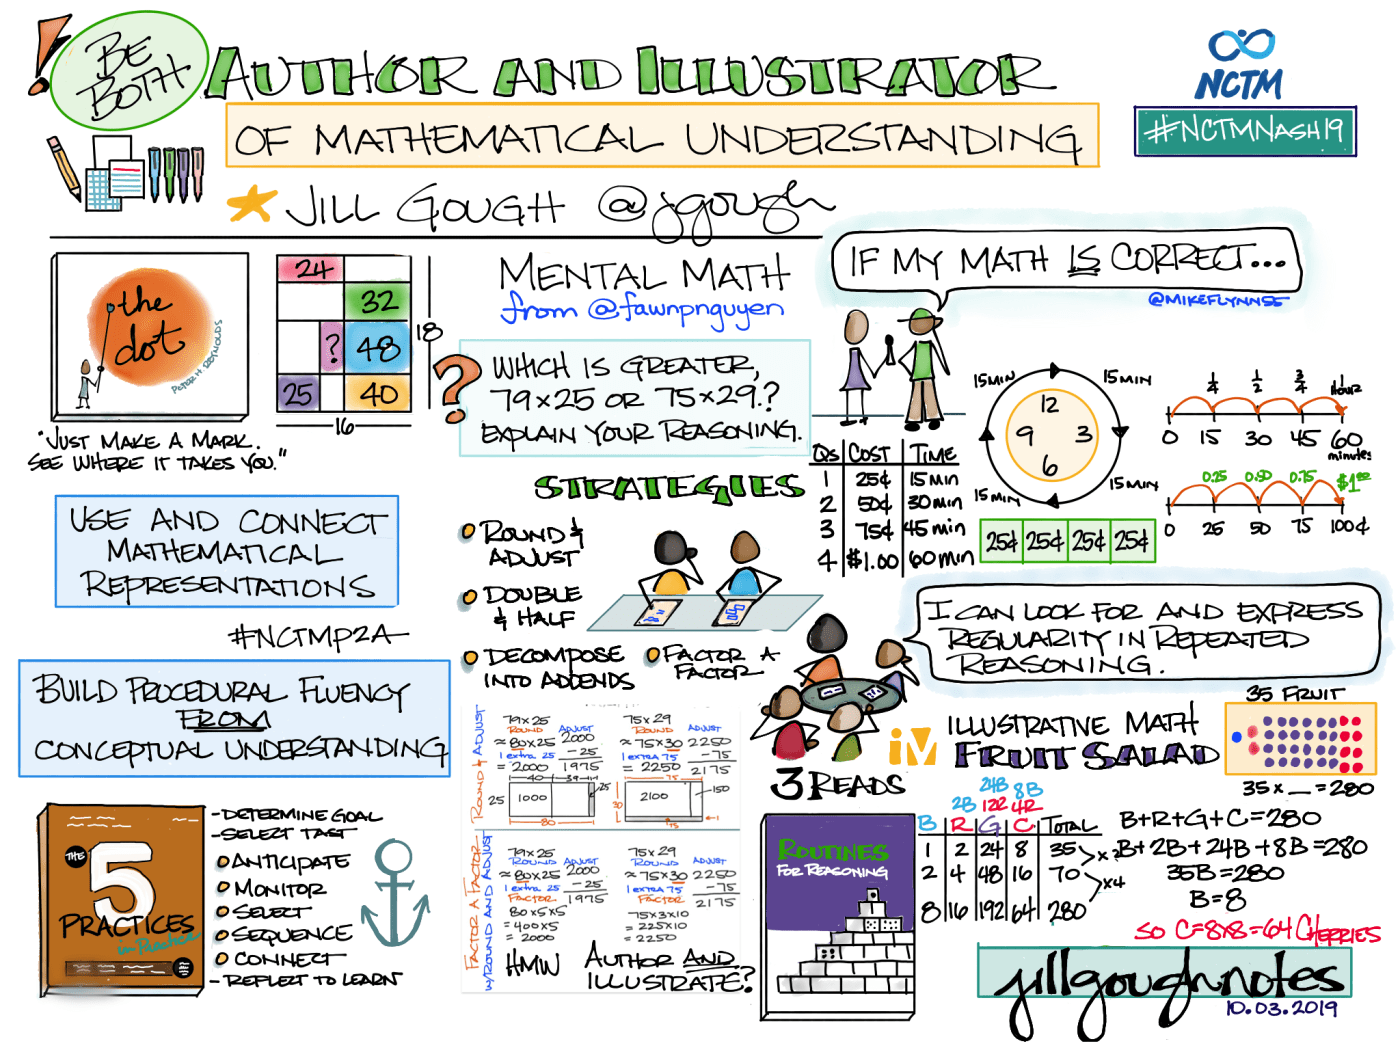 BE BOTH
AUTHOR AND ILLUSTRATOR
OF MATHEMATICAL UNDERSTANDING
NCTM
#NCTMNASH19
JILL GOUGH @jgough
the dot
PETER H. REYNOLDS
"JUST MAKE A MARK.
SEE WHERE IT TAKES YOU."
24
32
? 48
25 40
18
16
MENTAL MATH
from @fawnpnguyen
? WHICH IS GREATER,
79×25 OR 75×29.?
EXPLAIN YOUR REASONING.
IF MY MATH IS CORRECT...
@MIKEFLYNN55
QS COST TIME
1 25¢ 15 min
2 50¢ 30 min
3 75¢ 45 min
4 $1.00 60 min
15 MIN 15 MIN
12
9 3
6
15 MIN 15 MIN
25¢ 25¢ 25¢ 25¢
1/4 1/2 3/4 1 HOUR
0 15 30 45 60
minutes
0.25 0.50 0.75 $1.00
0 25 50 75 100¢
USE AND CONNECT
MATHEMATICAL
REPRESENTATIONS
#NCTMP2A
BUILD PROCEDURAL FLUENCY
FROM
CONCEPTUAL UNDERSTANDING
STRATEGIES
ROUND &
ADJUST
DOUBLE
& HALF
DECOMPOSE
INTO ADDENDS
FACTOR A
FACTOR
I CAN LOOK FOR AND EXPRESS
REGULARITY IN REPEATED
REASONING.
THE 5 PRACTICES
in Practice
-DETERMINE GOAL
-SELECT TASK
ANTICIPATE
MONITOR
SELECT
SEQUENCE
CONNECT
-REFLECT TO LEARN
ROUND & ADJUST
79×25
ROUND ADJUST
≈80×25 2000
1 extra 25 -25
=2000 1975
40 39 1
25 1000 25
80
75×29
ROUND ADJUST
≈75×30 2250
1 EXTRA 75 -75
=2250 2175
75
30 2100 150
75 1
FACTOR A FACTOR
W/ROUND AND ADJUST
79×25
ROUND ADJUST
≈80×25 2000
1 extra 25 -25
FACTOR 1975
80×5×5
=400×5
=2000
75×29
ROUND ADJUST
≈75×30 2250
1 EXTRA 75 -75
FACTOR 2175
75×3×10
=225×10
=2250
HMW AUTHOR AND
ILLUSTRATE?
3 READS
ROUTINES
FOR REASONING
IM ILLUSTRATIVE MATH
FRUIT SALAD
35 FRUIT
35 × __ = 280
24B 8B
2B 12R 4R
B R G C TOTAL
1 2 24 8 35
2 4 48 16 70
8 16 192 64 280
×2
×4
B+R+G+C=280
B+2B+24B+8B=280
35B=280
B=8
SO C=8×8=64 CHERRIES
jillgoughnotes
10.03.2019